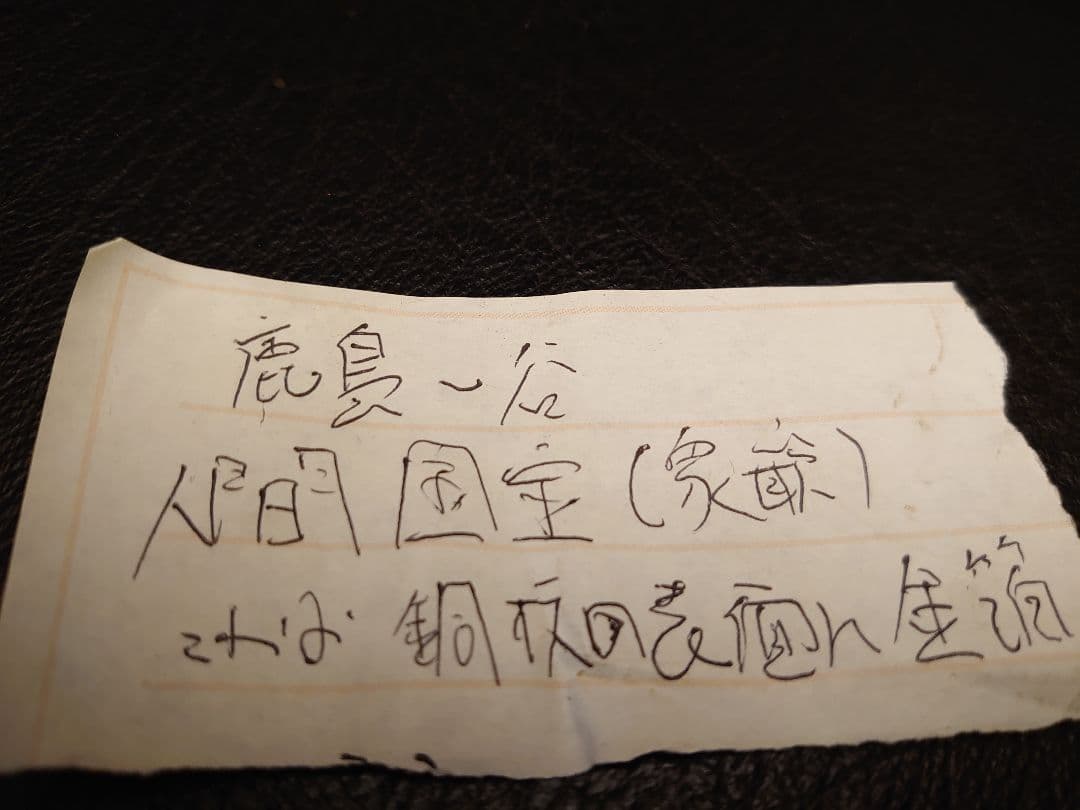 鹿島一谷
人間国宝(象嵌)
これは銅板の表面に金箔